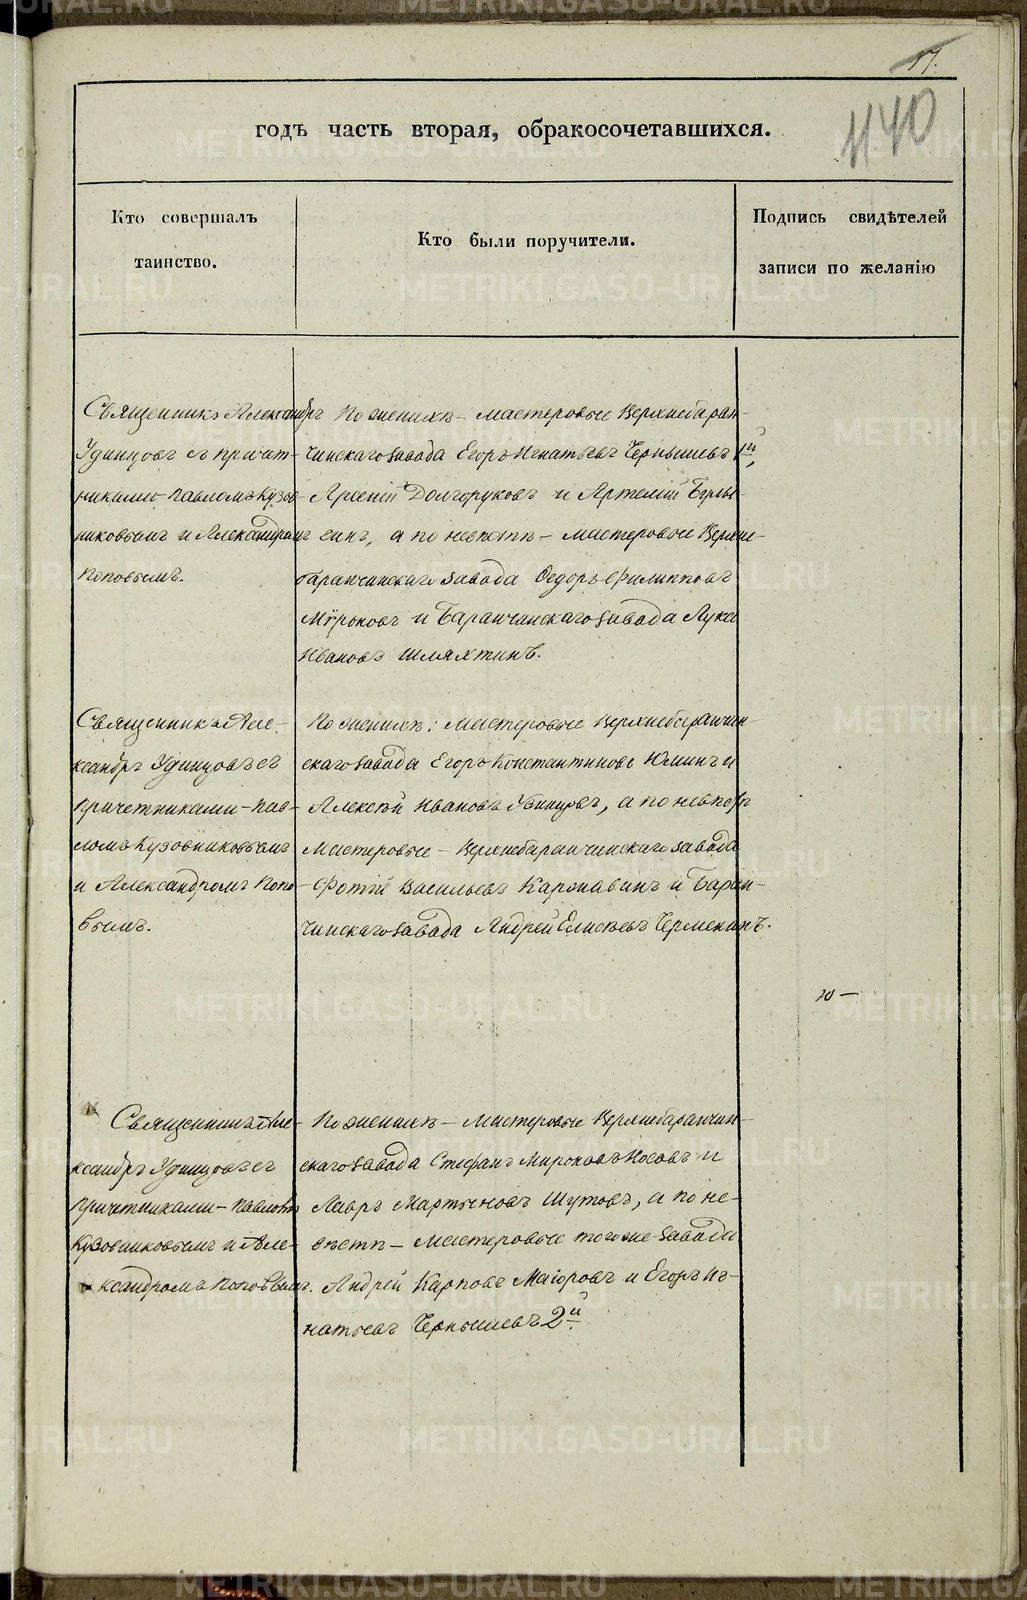 17.
1140
годъ часть вторая, обракосочетавшихся.
Кто совершалъ
таинство.
Кто были поручители.
Подпись свидѣтелей
записи по желанію
Священникъ Александръ
Удинцовъ съ причет-
никами Павломъ Кузов-
никовымъ и Александромъ
Поповымъ.
По женихѣ - мастеровые Верхнебаран-
чинскаго завода Егоръ Игнатьевъ Чернышевъ 1й,
Арсеній Долгоруковъ и Артемій
а по невѣстѣ - мастеровые Верхне-
баранчинскаго завода Ѳедоръ Филипповъ
и Баранчинскаго завода Лука
Ивановъ Шляхтинъ.
Священникъ Але-
ксандръ Удинцовъ съ
причетниками - Пав-
ломъ Кузовниковымъ
и Александромъ Попо-
вымъ.
По женихѣ: мастеровые Верхнебаранчин-
скаго завода Егоръ Константиновъ Юминъ и
Алексѣй Ивановъ а по невѣстѣ
мастеровые - Верхнебаранчинскаго завода
Фотій Васильевъ Карэнавинъ и Баран-
чинскаго завода Андрей Елисѣевъ Чермениnъ.
ю -
Священникъ Але-
ксандръ Удинцовъ съ
причетниками - Павломъ
Кузовниковымъ и Але-
ксандромъ Поповымъ.
По женихѣ - мастеровые Верхнебаранчин-
скаго завода Стефанъ Мироновъ Носовъ и
Лавръ Мартыновъ Шутовъ, а по не-
вѣстѣ - мастеровые того же завода
Андрей Карповъ Маіоровъ и Егоръ Иг-
натьевъ Чернышевъ 2й.
METRIKI.GASO-URAL.RU